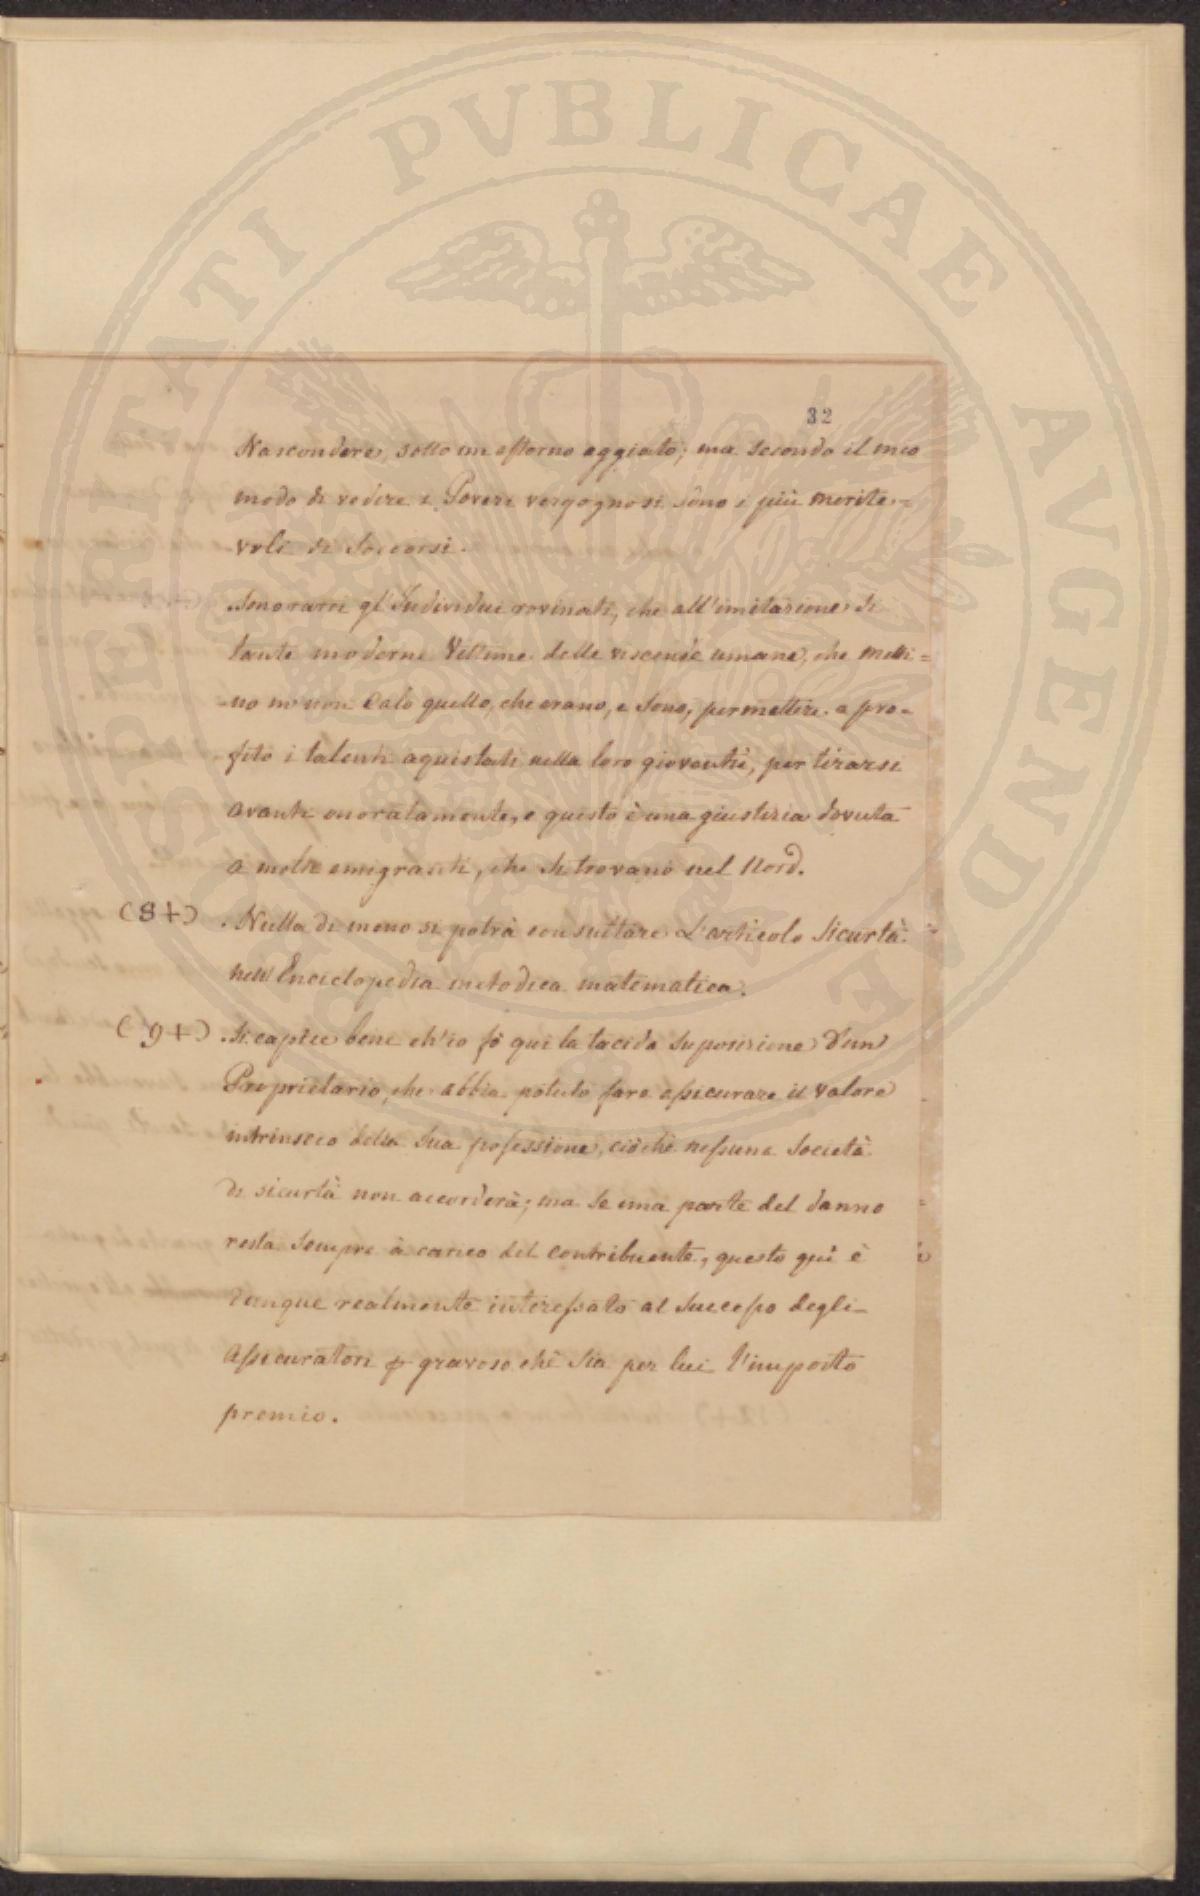 PROSPERITATI PVBLICAE AVGENDAE
32
Nascondere, sotto un esterno aggiato; ma secondo il mio
modo di vedere i Poveri vergognosi sono i più merite=
voli di Soccorsi.
Sonorarvi gl'Individui rovinati, che all'imitazione di
tante moderne Vittime delle viscende umane, che metti=
=no in non Calo quello, che erano, e sono, per mettere a pro=
fito i talenti aquistati nella loro gioventù, per tirarsi
avanti onoratamente, e questo è una giustizia dovuta
a molti emigranti, che si trovano nel Nord.
(8+) . Nulla di meno si potrà consultare L'articolo Sicurtà
nell'Enciclopedia metodica matematica.
(9+) . Si capice bene ch'io fò qui la tacida suposizione d'un
Proprietario, che abbia potuto fare assicurare il valore
intrinseco della sua possessione, ciòchè nessuna Società
di sicurtà non accorderà; ma se una parte del danno
resta sempre à carico del contribuente, questo quì è
dunque realmente interessato al successo degli
Assicuratori gravoso chè sia per lui l'imposto
premio.